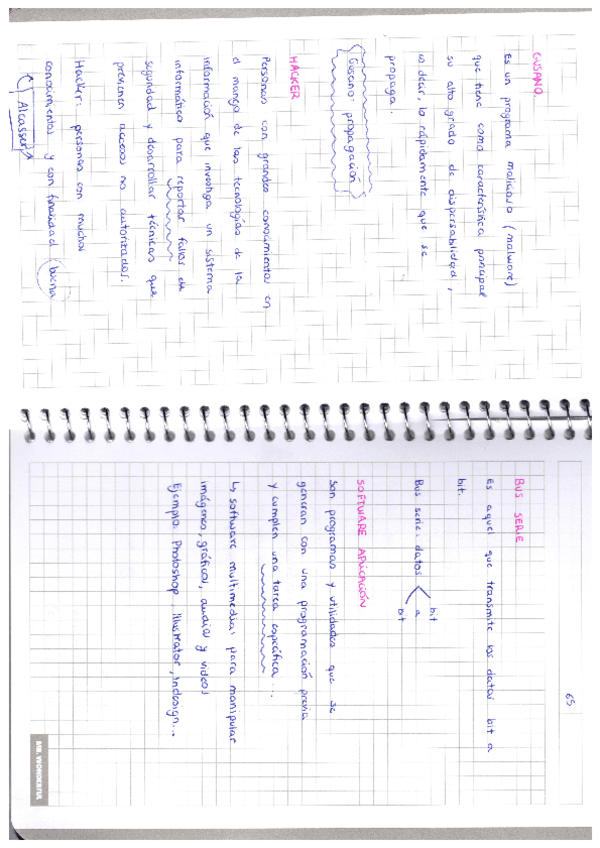 GUSANO.
Es un programa malicioso (malware)
que tiene como característica principal
su alto grado de dispersabilidad,
es decir, lo rápidamente que se
propaga.
Gusano: propagación
HACKER
Personas con grandes conocimientos en
el manejo de las tecnologías de la
información que investiga un sistema
informático para reportar fallos de
seguridad y desarrollar técnicas que
previenen accesos no autorizados.
Hacker: personas con muchos
conocimientos y con finalidad buena
Alcasser
65
BUS SERIE
Es aquel que transmite los datos bit a
bit.
Bus serie: datos
bit
a
bit
SOFTWARE APLICACIÓN
Son programas y utilidades que se
generan con una programación previa
y cumplen una tarea específica...
↳ software multimedia: para manipular
imágenes, gráficos, audios y videos
Ejemplo: Photoshop, illustrator, indesign...
MR. WONDERFUL